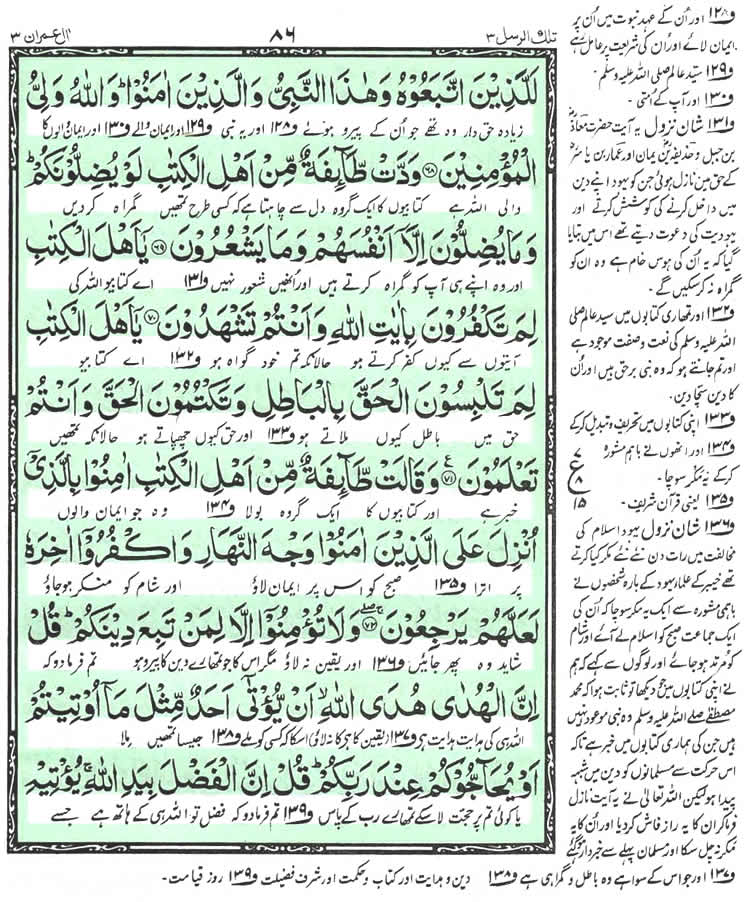 تلك الرسل ٣
٨٦
اٰل عمران ٣
لَلَّذِيْنَ اتَّبَعُوْهُ وَهٰذَا النَّبِيُّ وَالَّذِيْنَ اٰمَنُوْا ؕ وَاللّٰهُ وَلِيُّ
زیادہ حق دار وہ تھے جو اُن کے پیرو ہوئے و۱۲۸ اور یہ نبی و۱۲۹ اور ایمان والے و۱۳۰ اور ایمان والوں کا
الْمُؤْمِنِيْنَ ﴿٦٨﴾ وَدَّتْ طَّآئِفَةٌ مِّنْ اَهْلِ الْكِتٰبِ لَوْ يُضِلُّوْنَكُمْ ؕ
والی اللہ ہے کتابیوں کا ایک گروہ دل سے چاہتا ہے کہ کسی طرح تمہیں گمراہ کردیں
وَمَا يُضِلُّوْنَ اِلَّاۤ اَنْفُسَهُمْ وَمَا يَشْعُرُوْنَ ﴿٦٩﴾ يٰۤاَهْلَ الْكِتٰبِ
اور وہ اپنے ہی آپ کو گمراہ کرتے ہیں اور انہیں شعور نہیں و۱۳۱ اے کتابیو اللہ کی
لِمَ تَكْفُرُوْنَ بِاٰيٰتِ اللّٰهِ وَاَنْتُمْ تَشْهَدُوْنَ ﴿٧٠﴾ يٰۤاَهْلَ الْكِتٰبِ
آیتوں سے کیوں کفر کرتے ہو حالانکہ تم خود گواہ ہو و۱۳۲ اے کتابیو
لِمَ تَلْبِسُوْنَ الْحَقَّ بِالْبَاطِلِ وَتَكْتُمُوْنَ الْحَقَّ وَاَنْتُمْ
حق میں باطل کیوں ملاتے ہو و۱۳۳ اور حق کیوں چھپاتے ہو حالانکہ تمہیں
تَعْلَمُوْنَ ﴿٧١﴾ ع وَقَالَتْ طَّآئِفَةٌ مِّنْ اَهْلِ الْكِتٰبِ اٰمِنُوْا بِالَّذِيْۤ
خبر ہے اور کتابیوں کا ایک گروہ بولا و۱۳۴ وہ جو ایمان والوں
اُنْزِلَ عَلَى الَّذِيْنَ اٰمَنُوْا وَجْهَ النَّهَارِ وَاكْفُرُوْۤا اٰخِرَهٗ
پر اترا و۱۳۵ صبح کو اس پر ایمان لاؤ اور شام کو منکر ہوجاؤ
لَعَلَّهُمْ يَرْجِعُوْنَ ﴿٧٢﴾ وَلَا تُؤْمِنُوْۤا اِلَّا لِمَنْ تَبِعَ دِيْنَكُمْ ؕ قُلْ
شاید وہ پھر جائیں و۱۳۶ اور یقین نہ لاؤ مگر اس کا جو تمہارے دین کا پیرو ہو تم فرمادو کہ
اِنَّ الْهُدٰى هُدَى اللّٰهِ ۙ اَنْ يُّؤْتٰۤى اَحَدٌ مِّثْلَ مَاۤ اُوْتِيْتُمْ
اللہ ہی کی ہدایت ہدایت ہے و۱۳۷ (یقین کا ہے کا نہ لاؤ) اسکا کہ کسی کو ملے و۱۳۸ جیسا تمہیں ملا
اَوْ يُحَآجُّوْكُمْ عِنْدَ رَبِّكُمْ ؕ قُلْ اِنَّ الْفَضْلَ بِيَدِ اللّٰهِ ۚ يُؤْتِيْهِ
یا کوئی تم پر حجت لاسکے تمہارے رب کے پاس و۱۳۹ تم فرمادو کہ فضل تو اللہ ہی کے ہاتھ ہے جسے
و۱۲۸ اور اُن کے عہدِ نبوت میں اُن پر
ایمان لائے اور اُن کی شریعت پر عامل رہے
و۱۲۹ سیّدِ عالم صلی اللہ علیہ وسلم۔
و۱۳۰ اور آپ کے اُمتی۔
و۱۳۱ شان نزول یہ آیت حضرت معاذ
بن جبل و حذیفہ بن یمان اور عمار بن یاسر
کے حق میں نازل ہوئی جن کو یہود اپنے دین
میں داخل کرنے کی کوشش کرتے اور
یہودیت کی دعوت دیتے تھے اس میں بتایا
گیا کہ یہ اُن کی ہوس خام ہے وہ ان کو
گمراہ نہ کرسکیں گے۔
و۱۳۲ اور تمہاری کتابوں میں سیّدِ عالم صلی
اللہ علیہ وسلم کی نعت و صفت موجود ہے
اور تم جانتے ہو کہ وہ نبی برحق ہیں اور اُن
کا دین سچا دین۔
و۱۳۳ اپنی کتابوں میں تحریف و تبدیل کرکے
و۱۳۴ اور انھوں نے باہم مشورہ
کرکے یہ مکر سوچا۔
٧
ع
٨
١٥
و۱۳۵ یعنی قرآن شریف۔
و۱۳۶ شان نزول یہود اسلام کی
مخالفت میں رات دن نئے نئے مکر کیا کرتے
تھے خیبر کے علماء یہود کے بارہ شخصوں نے
باہمی مشورہ سے ایک یہ مکر سوچا کہ اُن کی
ایک جماعت صبح کو اسلام لے آئے اور شام
کو مرتد ہوجائے اور لوگوں سے کہے کہ ہم
نے اپنی کتابوں میں جو دیکھا تو ثابت ہوا کہ محمد
مصطفےٰ صلے اللہ علیہ وسلم وہ نبی موعود نہیں
ہیں جن کی ہماری کتابوں میں خبر ہے تاکہ
اس حرکت سے مسلمانوں کو دین میں شبہ
پیدا ہو لیکن اللہ تعالیٰ نے یہ آیت نازل
فرما کر ان کا یہ راز فاش کردیا اور اُن کا یہ
مکر نہ چل سکا اور مسلمان پہلے سے خبردار ہوگئے
و۱۳۷ اور جو اس کے سوا ہے وہ باطل و گمراہی ہے و۱۳۸ دین و ہدایت اور کتاب و حکمت اور شرف فضیلت و۱۳۹ روز قیامت۔